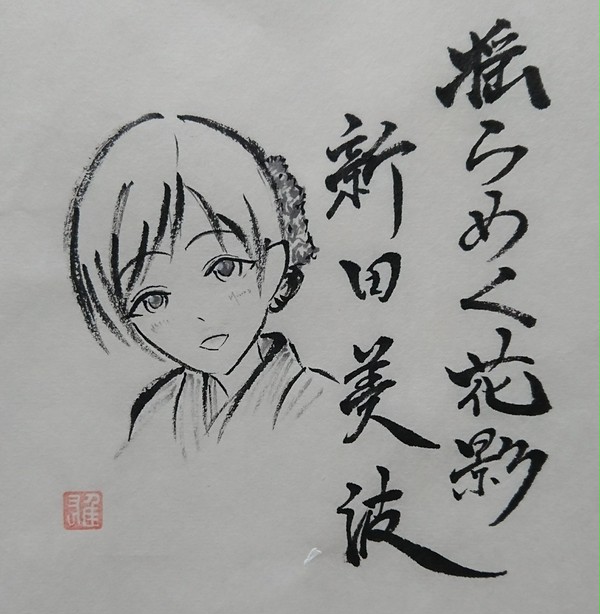 揺らめく花影
新田美波
雅